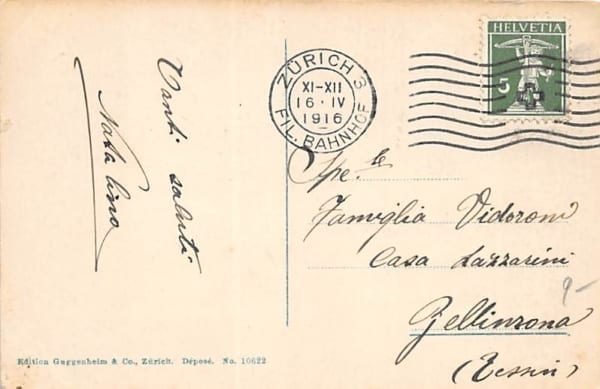 Tanti saluti
Natalino
ZÜRICH 3
XI-XII
16·IV
1916
FIL. BAHNHOF
HELVETIA
5
Spe.le
Famiglia Vidoroni
Casa Lazzarini
Bellinzona
(Tessin)
9-
Edition Guggenheim & Co., Zürich. Déposé. No. 10622